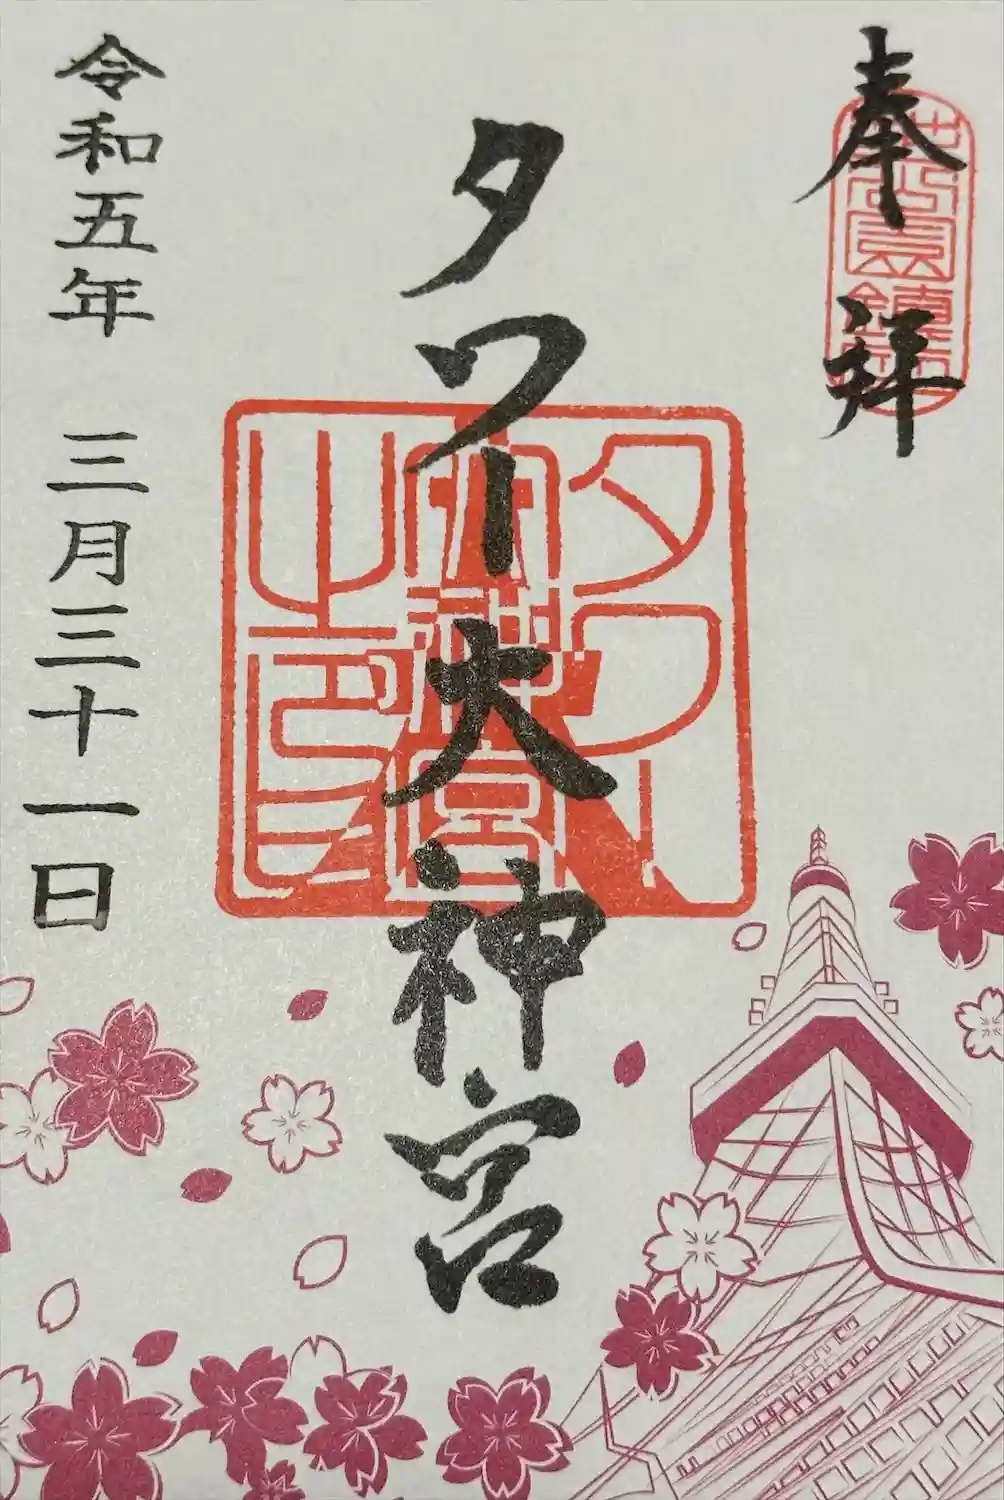 奉拝
タワー大神宮
タワー大神宮之印
令和五年 三月三十一日